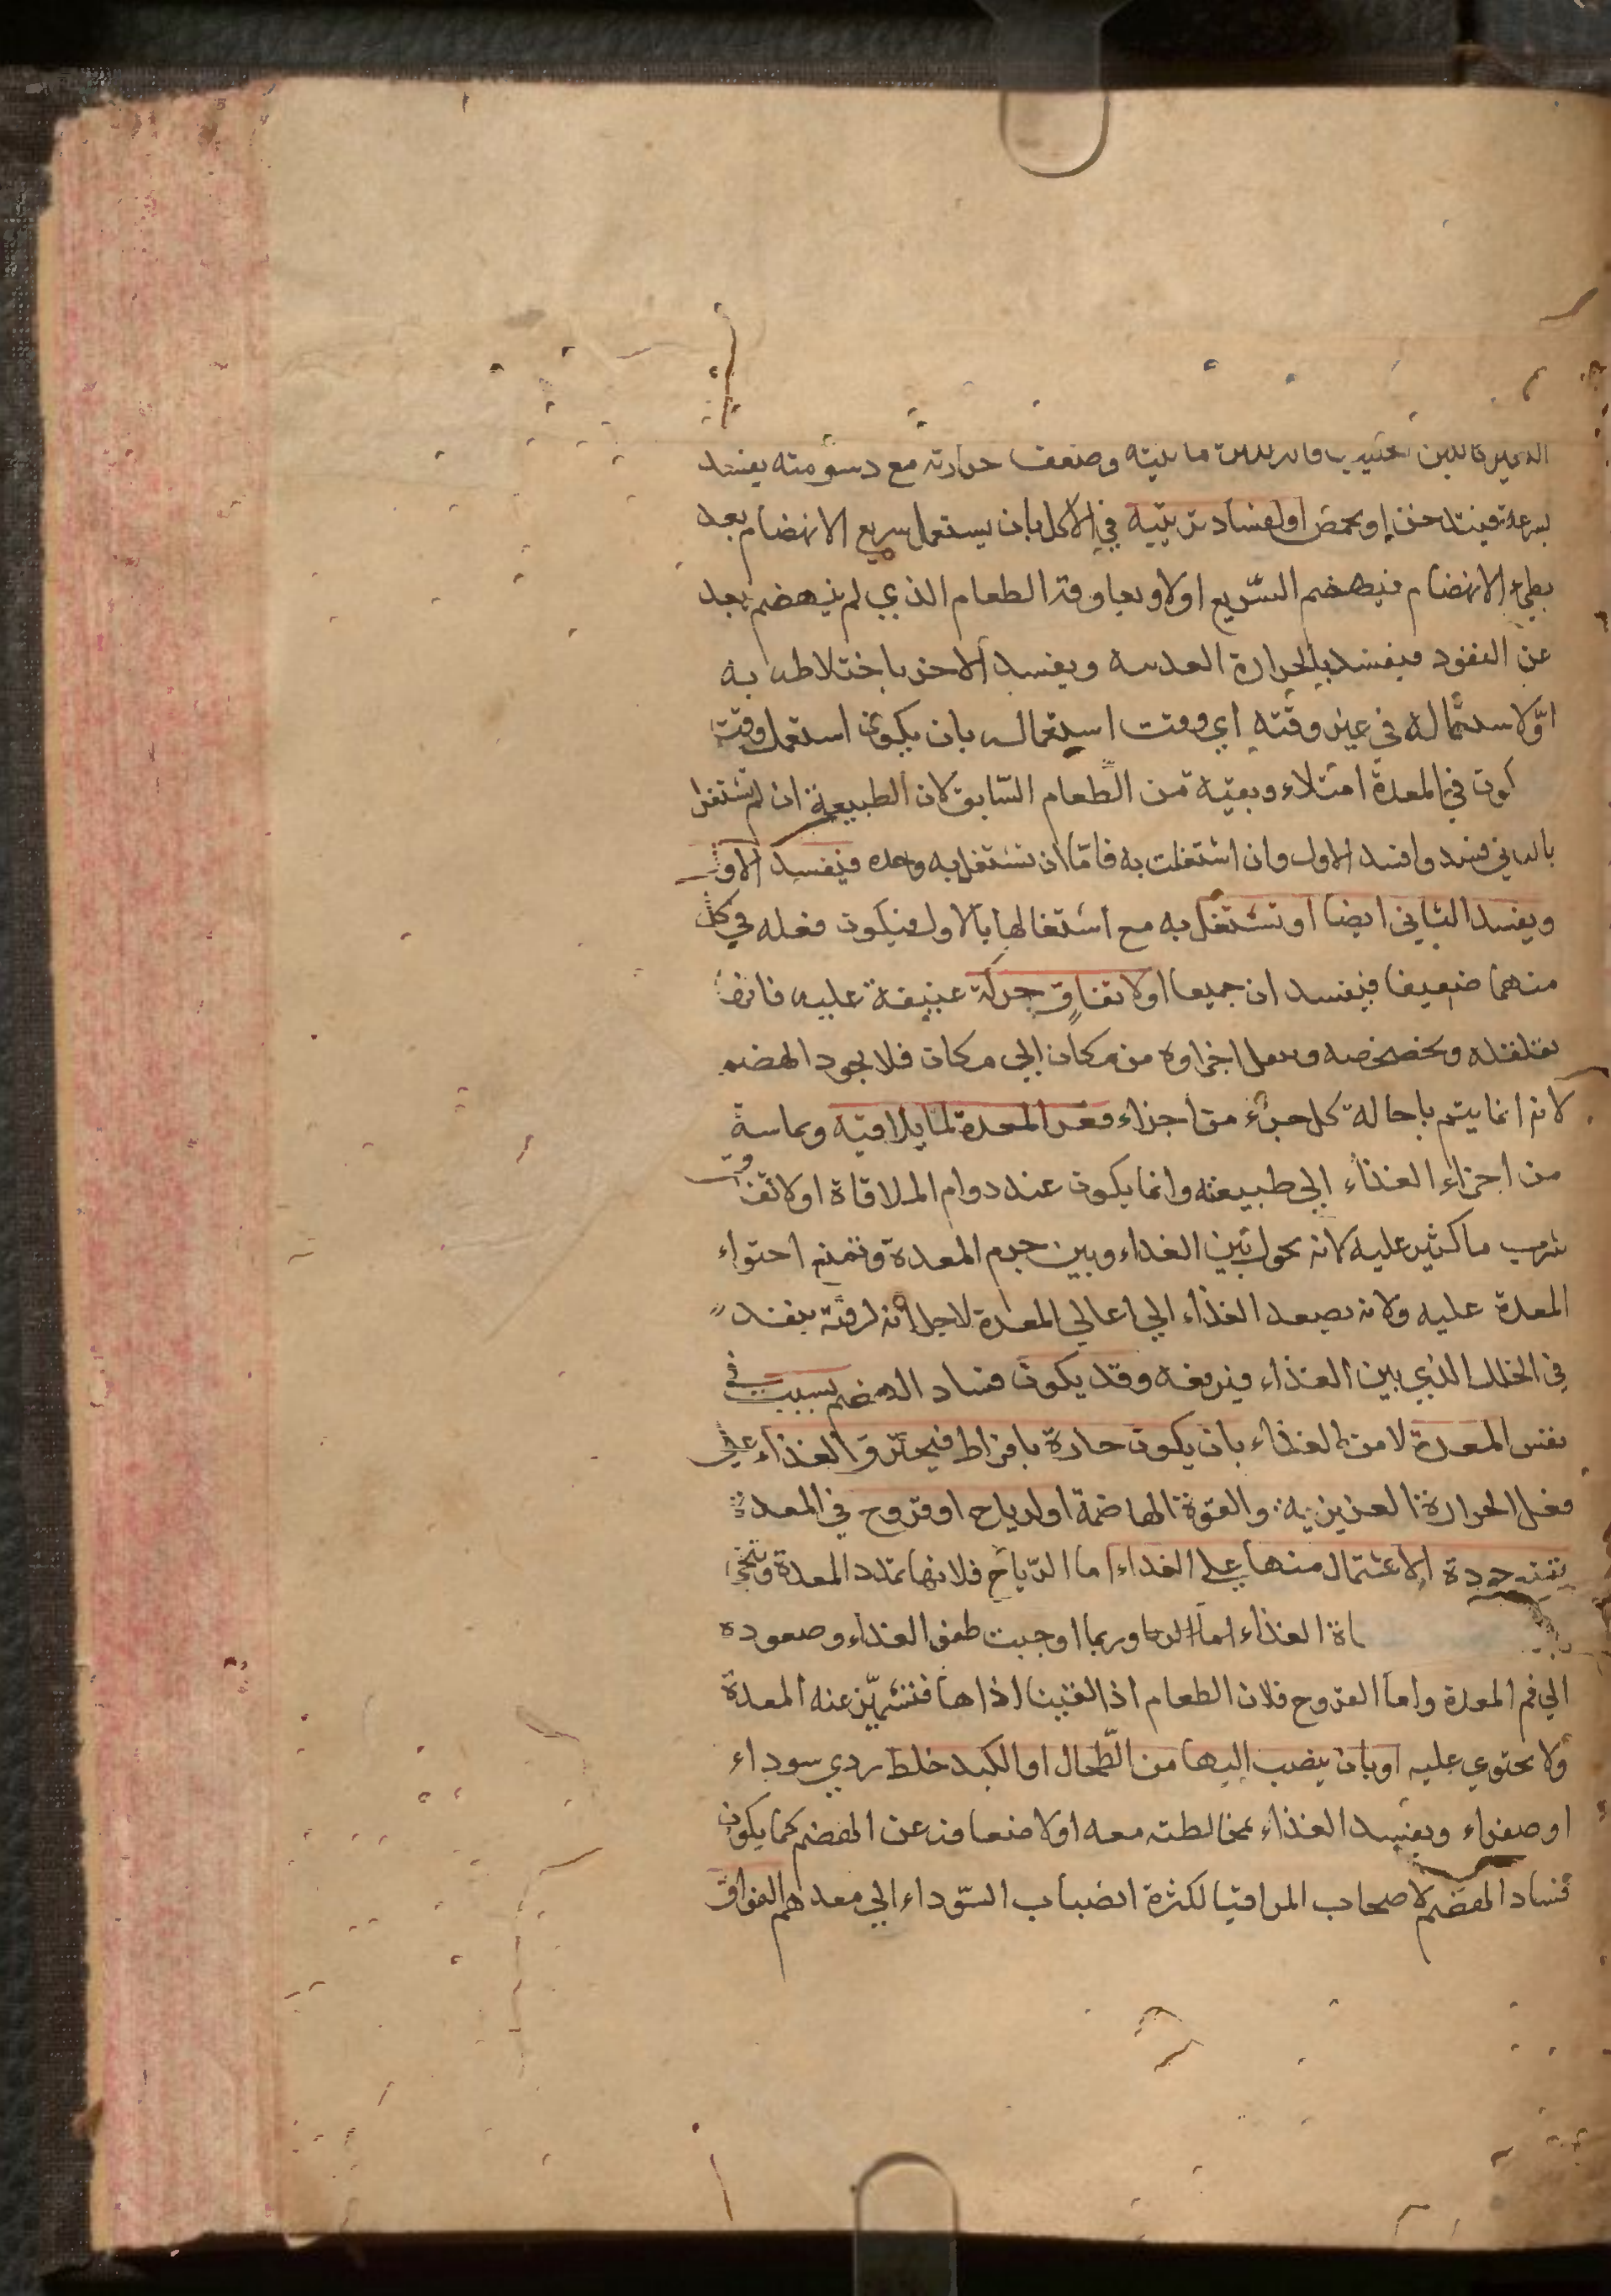 مائيته وضعف حرارته مع دسومته يفسد
بسرعة فيتدخن او يحمض او لفساد ترتيبه في الاكل بان يستعمل سريع الانهضام بعد
بطيء الانهضام فينهضم السريع اولا ويعاوقه الطعام الذي لم ينهضم بعد
عن النفوذ فيفسد بالحرارة المعدية ويفسد الاخر باختلاطه به
او لاستعماله في غير وقته اي وقت استعماله بان يكون استعمل وقت
كون في المعدة امتلاء وبقية من الطعام السابق لان الطبيعة ان لم تشتغل
بالثاني فسد وافسد الاول وان اشتغلت به فاما ان تشتغل به وحده فيفسد الاول
ويفسد الثاني ايضا او تشتغل به مع اشتغالها بالاول فيكون فعله في كل
منهما ضعيفا فيفسدان جميعا او لاتفاق حركة عنيفة عليه فانها
تقلقله وتخضخضه وتنقل اجزاوه من مكان الي مكان فلا يجود الهضم
لانه انما يتم باحالة كل جزء من اجزاء قعر المعدة لما يلاقيه ويماسه
من اجزاء الغذاء الي طبيعته وانما يكون عند دوام الملاقاة او لاتفاق
شرب ماء كثير عليه لانه يحول بين الغذاء وبين جرم المعدة وتمنع احتواء
المعدة عليه ولانه يصعد الغذاء الي اعالي المعدة لاجل انه لرقته ينفذ
في الخلل الذي بين الغذاء فيرفعه وقد يكون فساد الهضم بسبب في
نفس المعدة لا من الغذاء بان يكون حارة بافراط فيحترق الغذاء علي
فعل الحرارة الغريزية والقوة الهاضمة او لرياح او قروح في المعدة
جودة الاشتمال منها علي الغذاء اما الرياح فلانها تمدد المعدة
الغذاء وربما اوجبت طفو الغذاء وصعوده
الي فم المعدة واما القروح فلان الطعام اذا لقيها اذاها فتشمئز عنه المعدة
ولا يحتوي عليه او بان ينصب اليها من الطحال او الكبد خلط ردي سوداء
او صفراء ويفسد الغذاء بمخالطته معه او لاضعافه عن الهضم كما يكون
فساد الهضم لاصحاب المراقيا لكثرة انصباب السوداء الي معدهم الفواق